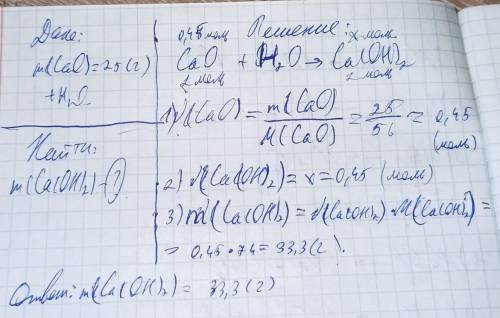 Дано:
m(CaO)=25(г)
+H₂O
Найти:
m(Ca(OH)₂)-?
Решение:
0,45 моль x моль
CaO + H₂O → Ca(OH)₂
1) (CaO) = m(CaO) / M(CaO) = 25 / 56 = 0,45 (моль)
2) (Ca(OH)₂) = x = 0,45 (моль)
3) m(Ca(OH)₂) = (Ca(OH)₂) · M(Ca(OH)₂) =
= 0,45 · 74 = 33,3 (г).
Ответ: m(Ca(OH)₂) = 33,3 (г)